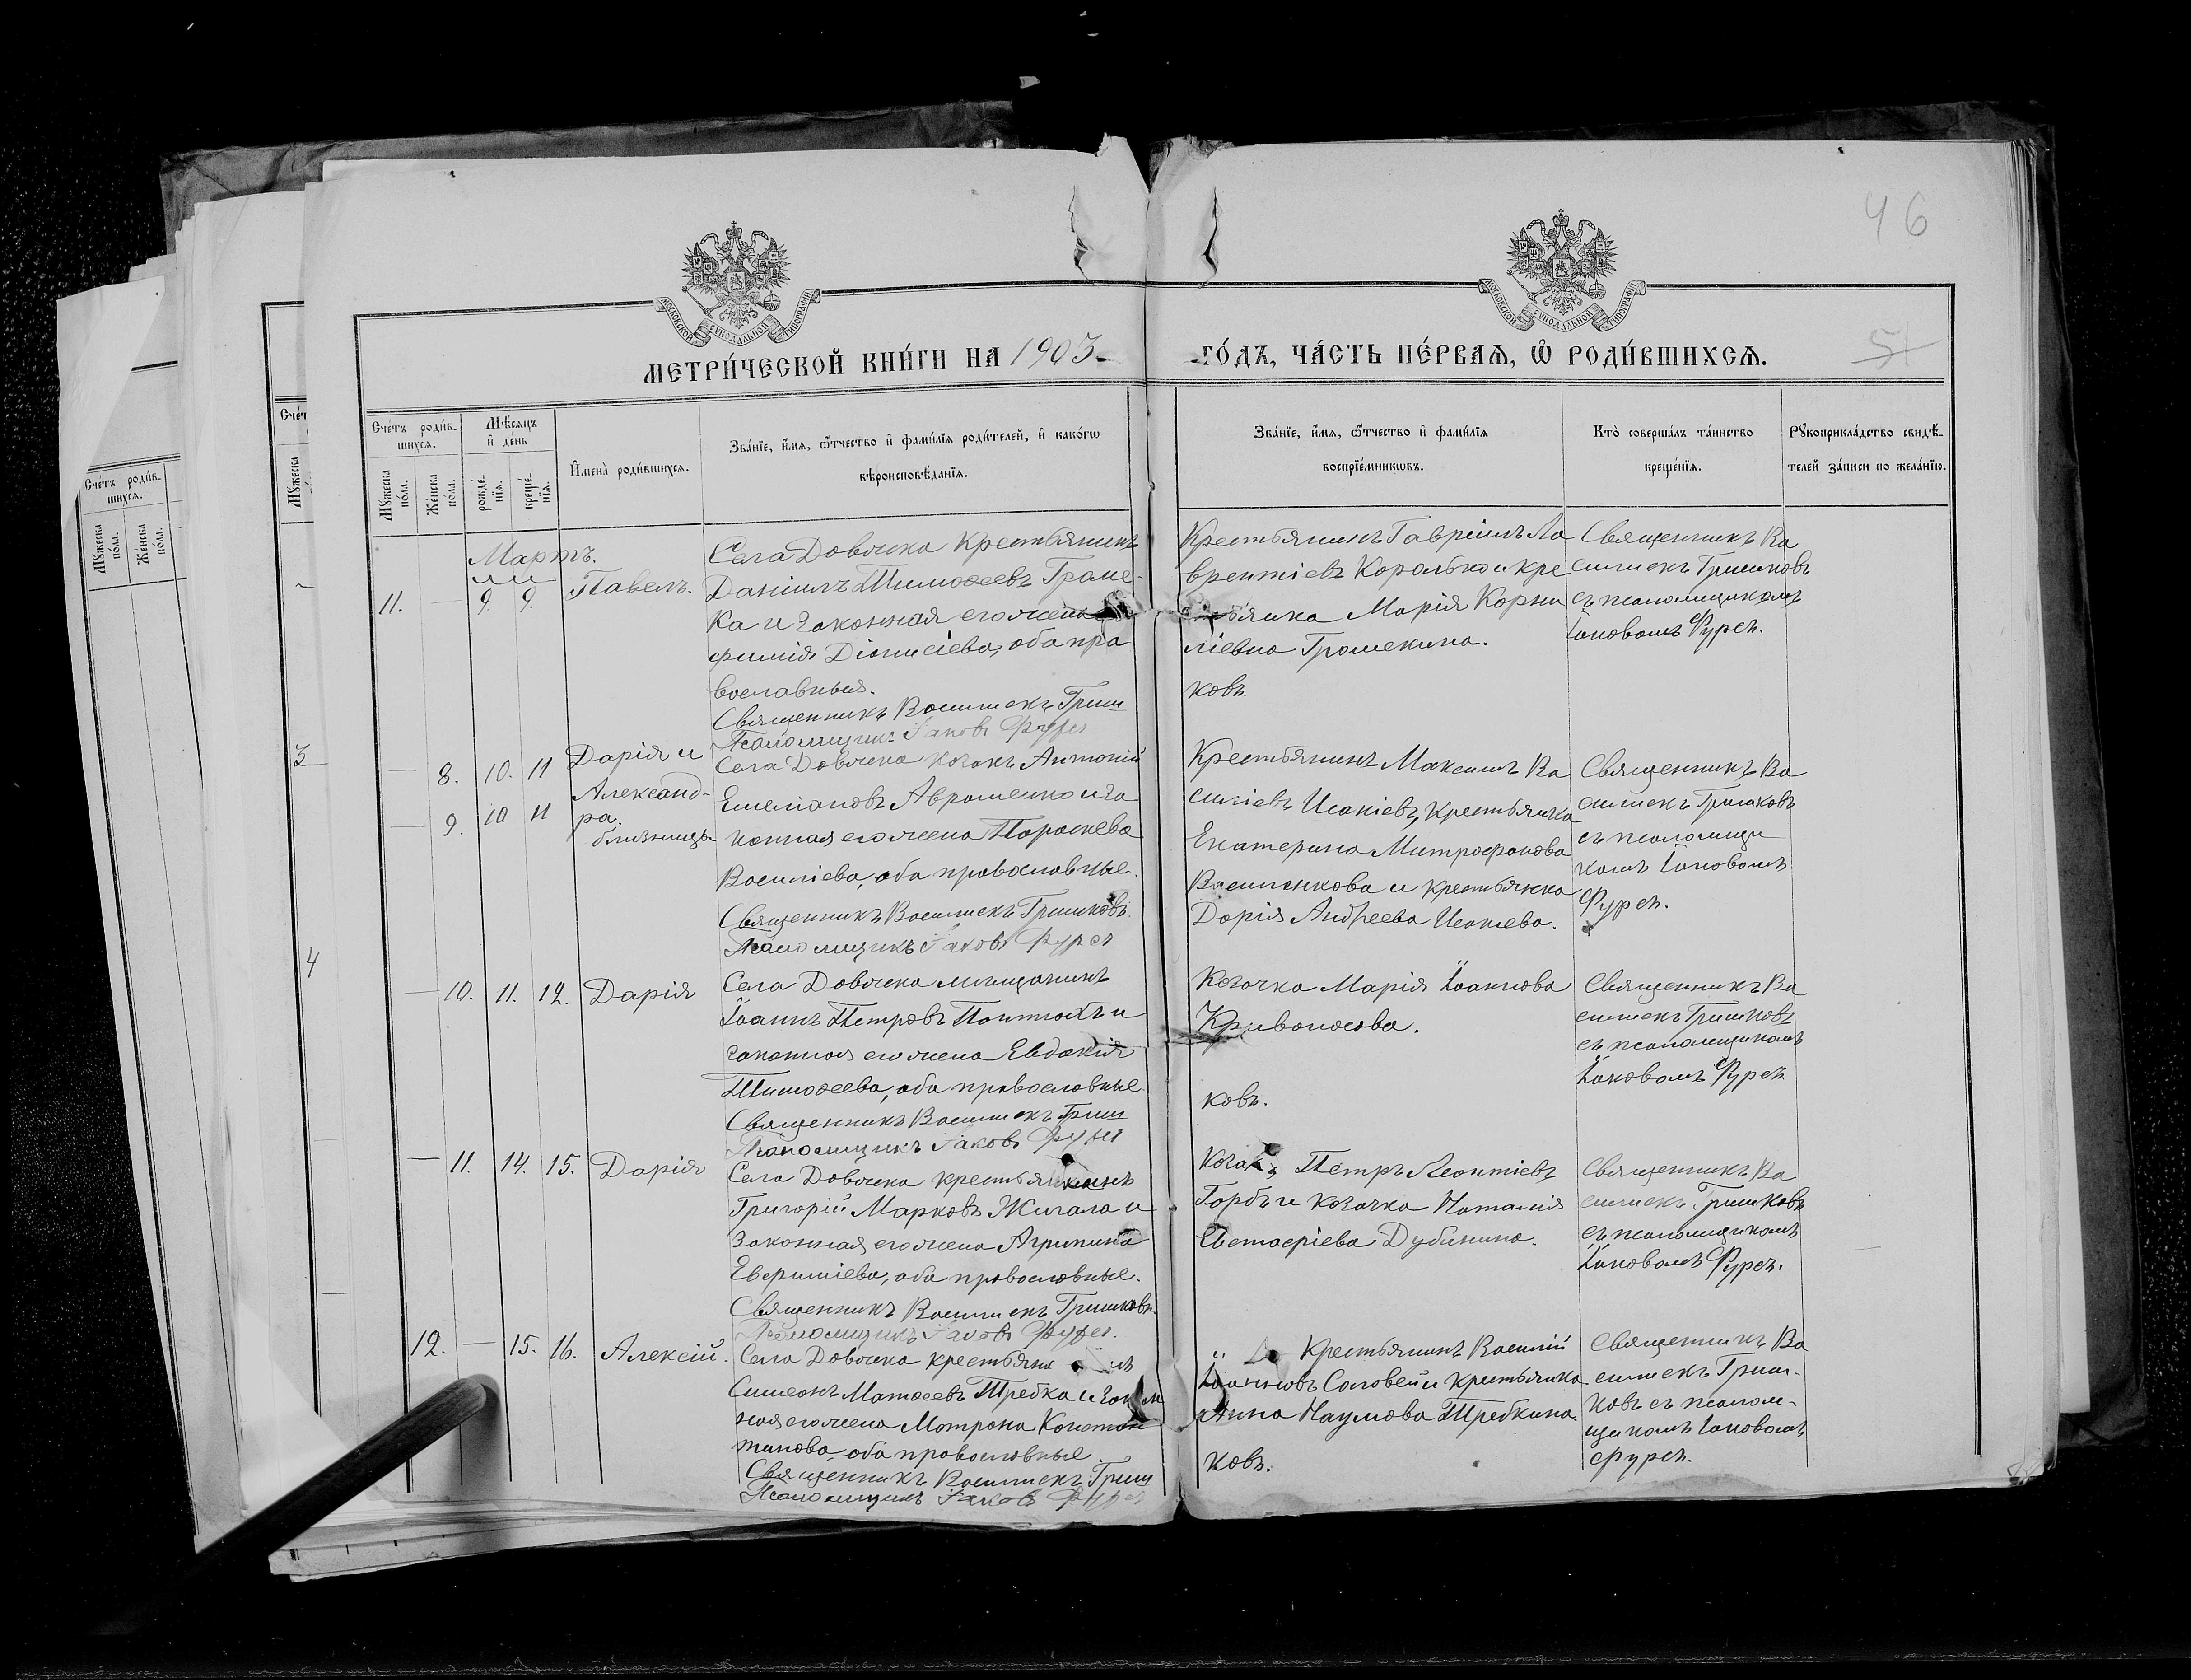 46
51
МОСКОВСКОЙ СУНОДАЛЬНОЙ ТИПОГРАФІИ
МОСКОВСКОЙ СУНОДАЛЬНОЙ ТИПОГРАФІИ
МЕТРИ́ЧЕСКОЙ КНИ́ГИ НА 1903
ГО́ДЪ, ЧА́СТЬ ПЕ́РВАѦ, Ѽ РОДИ́ВШИХСѦ.
Сче́тъ роди́в-
шихсѧ.
Мѣ́сѧцъ
и҆ де́нь
Мꙋ́жеска
по́ла.
Же́нска
по́ла.
рожде́-
нїѧ.
креще́-
нїѧ.
И҆мена̀ роди́вшихсѧ.
Зва́нїе, и҆́мѧ, ѻ҆́тчество и҆ фами́лїѧ роди́телей, и҆ како́гѡ
вѣроисповѣ́данїѧ.
Зва́нїе, и҆́мѧ, ѻ҆́тчество и҆ фами́лїѧ
воспрїе́мникѡвъ.
Кто̀ соверша́лъ та́инство
креще́нїѧ.
Рꙋкоприкла́дство свидѣ́-
телей за́писи по жела́нїю.
Мартъ.
11. — 9. 9. Павелъ.
Села Довжика крестьянинъ
Даніилъ Тимоѳеевъ Громе-
ка и законная его жена
фимія Діонисіева, оба пра
вославныя.
Священникъ Василискъ Гриш
ковъ.
Псаломщикъ Іаковъ Фурса
Крестьянинъ Гавріилъ Ла
врентіевъ Королько и кре
стьянка Марія Корни
ліевна Громекина.
Священникъ Ва
силискъ Гришковъ
съ псаломщикомъ
Іаковомъ Фурса.
— 8. 10. 11 Дарія и
Александ-
— 9. 10 11 ра.
близнецы
Села Довжика козакъ Антоній
Емеліановъ Авраменко и за
конная его жена Параскева
Василіева, оба православные.
Священникъ Василискъ Гришковъ.
Псаломщикъ Іаковъ Фурса
Крестьянинъ Максимъ Ва
силіевъ Исакіевъ, крестьянка
Екатерина Митрофанова
Василенкова и крестьянка
Дарія Андреева Исакіева.
Священникъ Ва
силискъ Гришковъ
съ псаломщи
комъ Іаковомъ
Фурса.
— 10. 11. 12. Дарія
Села Довжика мѣщанинъ
Іоаннъ Петровъ и
законная его жена Евдокія
Тимоѳеева, оба православные
Священникъ Василискъ Гриш
ковъ.
Псаломщикъ Іаковъ Фурса
Козачка Марія Іоаннова
Кривоносова.
Священникъ Ва
силискъ Гришковъ
съ псаломщикомъ
Іаковомъ Фурса
— 11. 14. 15. Дарія
Села Довжика крестьянинъ
Григорій Марковъ Жигала и
законная его жена Агрипина
Евфиміева, оба православные.
Священникъ Василискъ Гришковъ.
Псаломщикъ Іаковъ Фурса.
Козакъ Петръ Леонтіевъ
Горбъ и козачка Наталія
Евстафіева Дубинина.
Священникъ Ва
силискъ Гришковъ
съ псаломщикомъ
Іаковомъ Фурса.
12. — 15. 16. Алексій.
Села Довжика крестьянинъ
Симеонъ Матѳеевъ Требка и закон
ная его жена Матрона Констан
тинова, оба православные.
Священникъ Василискъ Гриш
ковъ.
Псаломщикъ Іаковъ Фурса
Крестьянинъ Василій
Іоанновъ Соловей и крестьянка
Анна Наумова Требкина.
Священникъ Ва
силискъ Гриш-
ковъ съ псалом-
щикомъ Іаковомъ
Фурса.